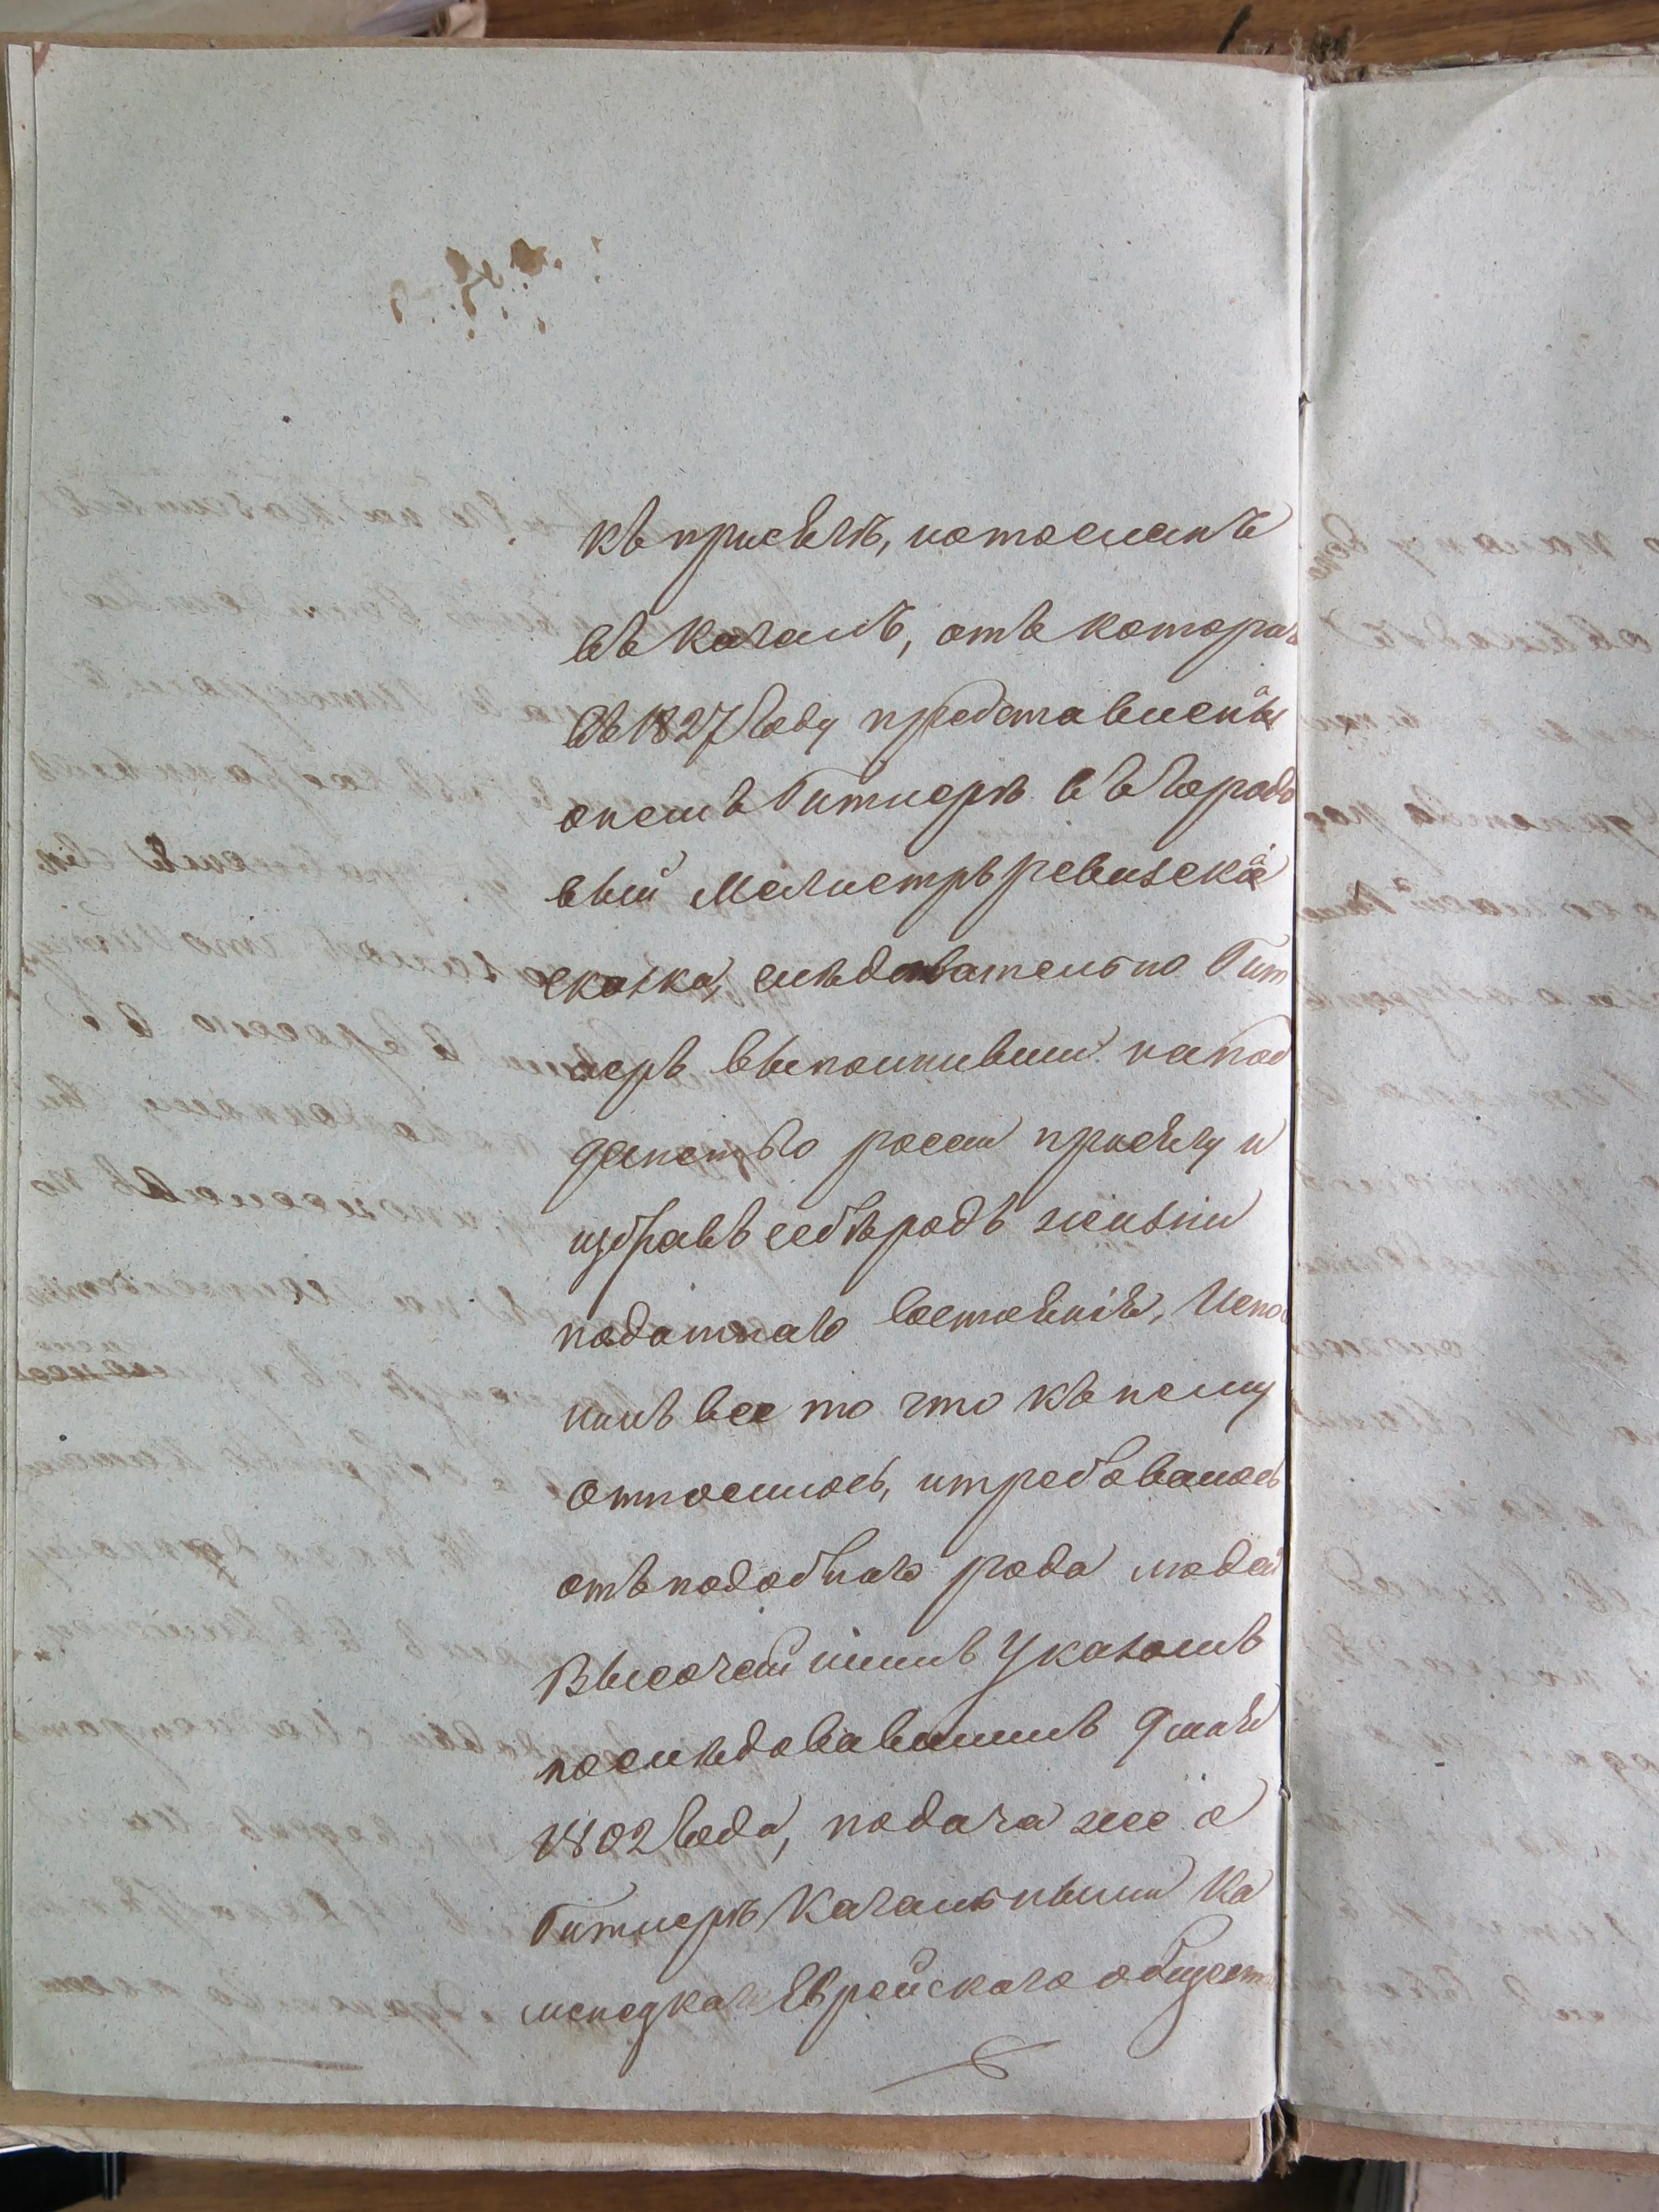 къ присягѣ, и отосланъ
въ Кагалъ, отъ котора
въ 1827 году представлена
о немъ Гитлерѣ въ Городо
вый Магистръ ревизская
сказка, слѣдовательно Гит
леръ выполнивши на под
данство росси присягу и
избравъ себѣ родъ жизни
податнаго Состоянія, Испо
нилъ все то что къ нему
относилось, и требовалось
отъ подобнаго рода людей
Высочайшимъ Указомъ
последовавшимъ 9 мая
1802 года, подача же о
Гитлерѣ Кагальными Ка
менецкаго Еврейскаго общест